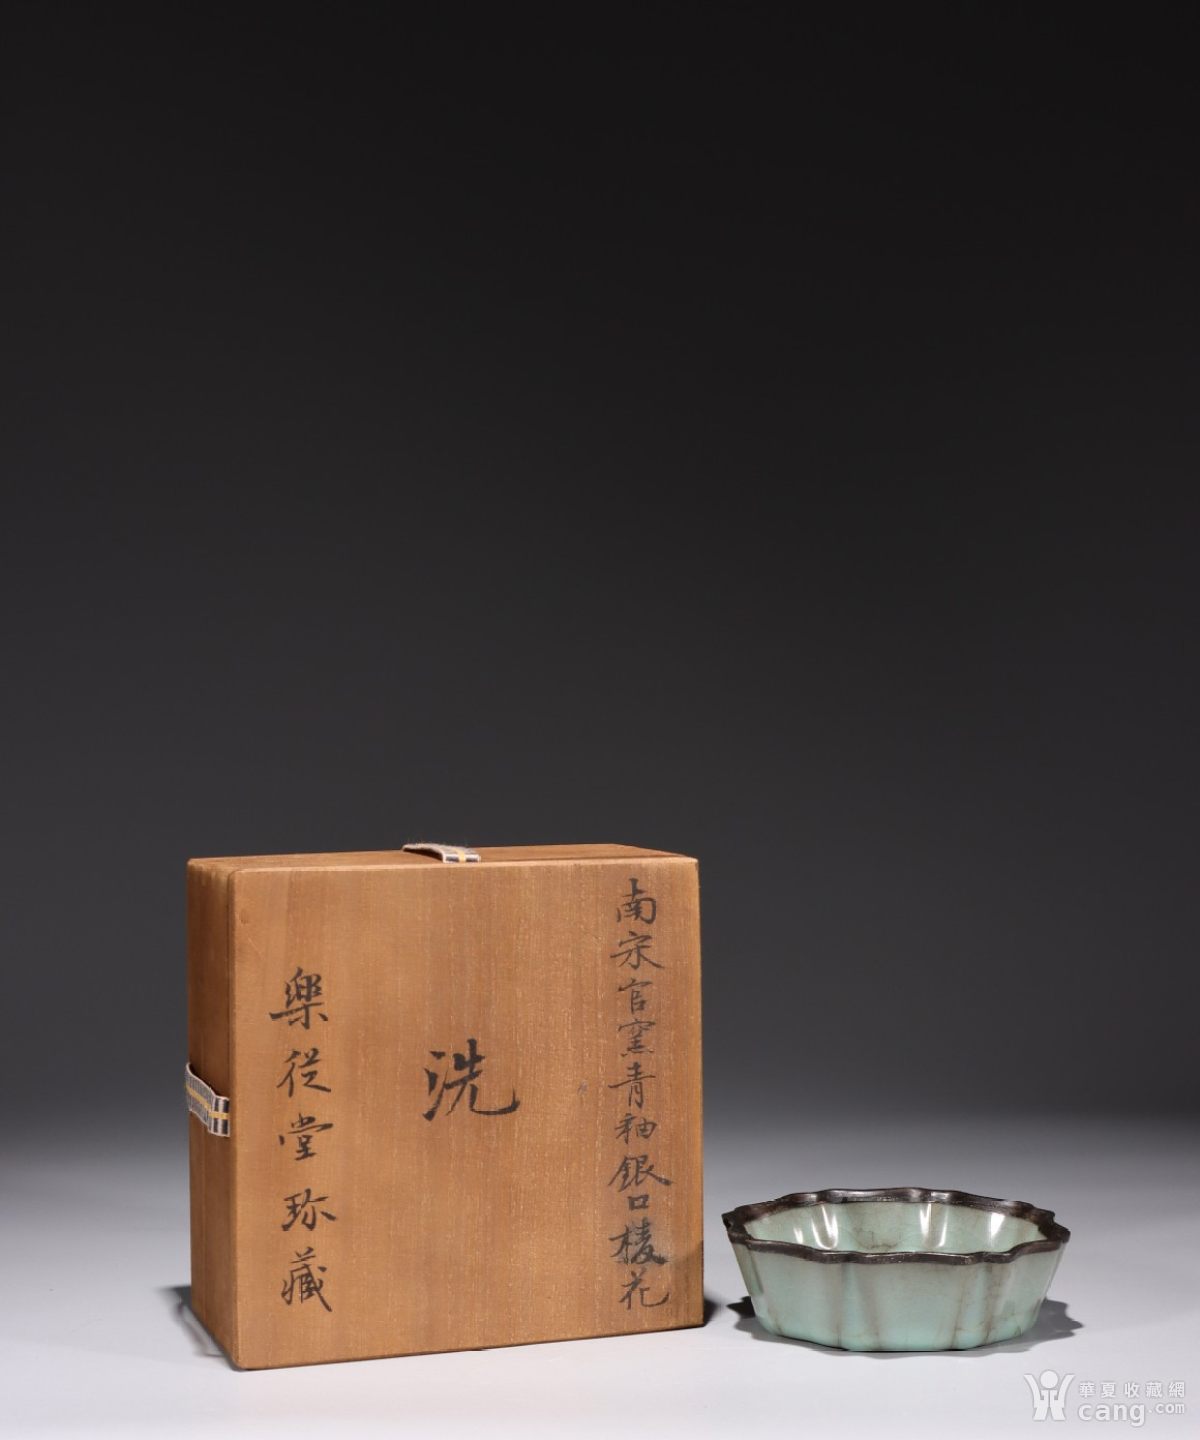 南宋官窯青釉銀口棱花
洗
樂從堂珍藏
華夏收藏網
cang.com